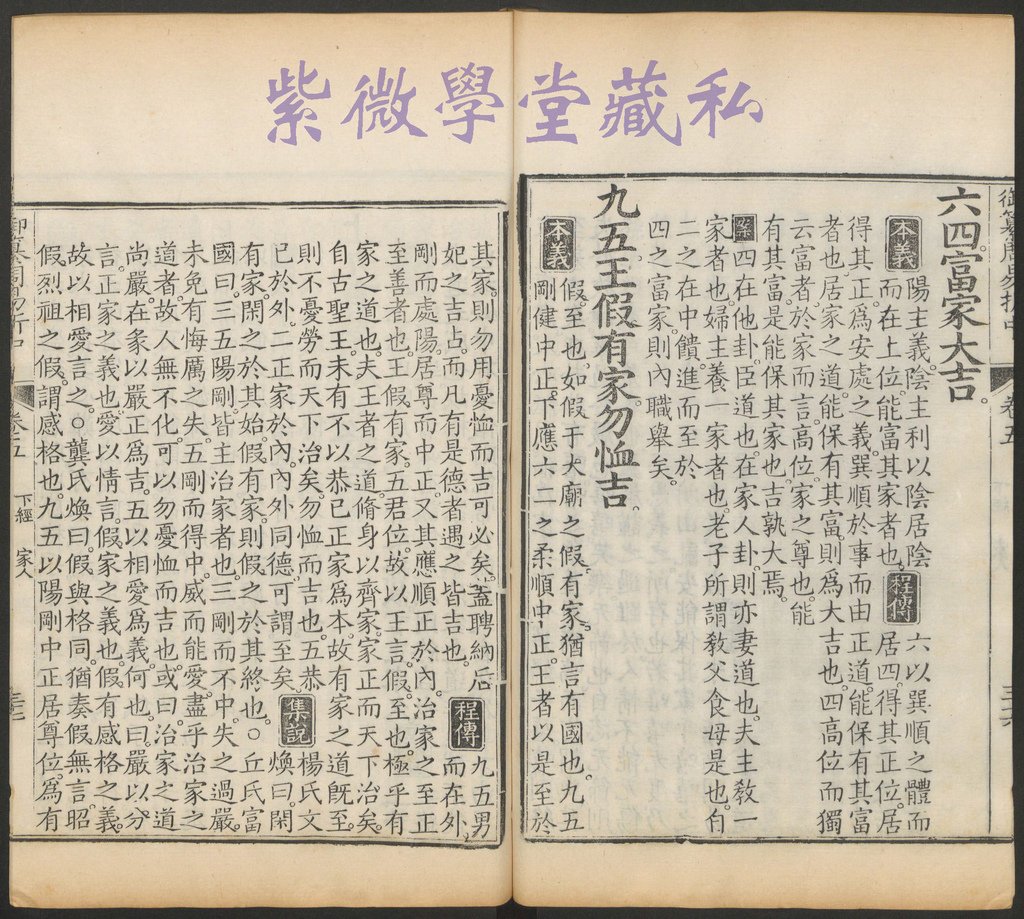 紫微學堂藏私
卷五
六四富家大吉。
本義
陽主義。陰主利。以陰居陰
而在上位。能富其家者也。
程傳
六以巽順之體而
居四。得其正位。居
得其正。為安處之義。巽順於事而由正道。能保有其富
者也。居家之道。能保有其富。則為大吉也。四高位而獨
云富者。於家而言。高位。家之尊也。能
有其富。是能保其家也。吉孰大焉。
案四在他卦。臣道也。在家人卦。則亦妻道也。夫主教一
家者也。婦主養一家者也。老子所謂教父食母是也。自
二之在中饋。進而至於
四之富家。則內職舉矣。
九五王假有家勿恤吉。
本義
假。至也。如假于大廟之假。有家。猶言有國也。九五
剛健中正。下應六二之柔順中正。王者以是至於
其家。則勿用憂恤而吉可必矣。蓋聘納后
妃之吉占。而凡有是德者遇之。皆吉也。
程傳
九五男
而在外
剛而處陽。居尊而中正。又其應順正於內。治家之至正
至善者也。王假有家。五君位。故以王言。假。至也。極乎有
家之道也。夫王者之道。脩身以齊家。家正而天下治矣。
自古聖王。未有不以恭己正家為本。故有家之道既至。
則不憂勞而天下治矣。勿恤而吉也。五恭
已於外。二正家於內。內外同德。可謂至矣。
集說
楊氏文
煥曰。閑
有家。閑之於其始。假有家。則假之於其終也。○丘氏富
國曰。三五陽剛。皆主治家者也。三剛而不中。失之過嚴。
未免有悔厲之失。五剛而得中。威而能愛。盡乎治家之
道者。故人無不化。可以勿憂恤而吉也。或曰。治家之道
尚嚴。在象以嚴正為吉。五以相愛為義。何也。曰。嚴以分
言。正家之義也。愛以情言。假家之義也。假有感格之義。
故以相愛言之。○龔氏煥曰。假與格同。猶奏假無言。昭
假烈祖之假。謂感格也。九五以陽剛中正居尊位。為有
卷五
下經
家人